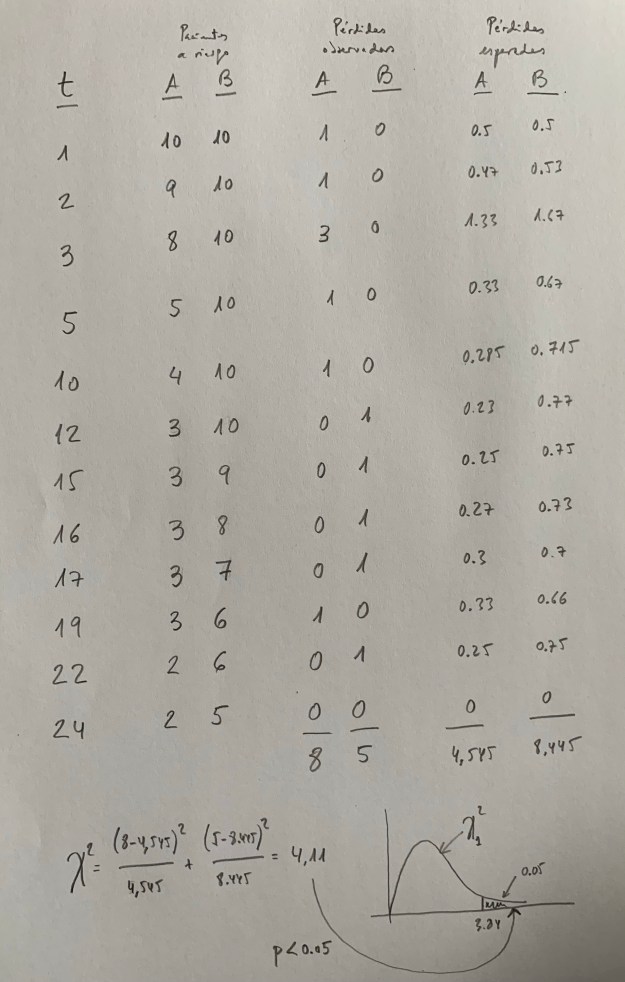 Pacientes Pérdidas Pérdidas
a riesgo observadas esperadas
t A B A B A B
1 10 10 1 0 0.5 0.5
2 9 10 1 0 0.47 0.53
3 8 10 3 0 1.33 1.67
5 5 10 1 0 0.33 0.67
10 4 10 1 0 0.285 0.715
12 3 10 0 1 0.23 0.77
15 3 9 0 1 0.25 0.75
16 3 8 0 1 0.27 0.73
17 3 7 0 1 0.3 0.7
19 3 6 1 0 0.33 0.66
22 2 6 0 1 0.25 0.75
24 2 5 0 0 0 0
8 5 4,545 8,445
χ² = (8-4,545)²/4,545 + (5-8.445)²/8.445 = 4,11
χ²₁
0.05
3.84
p<0.05